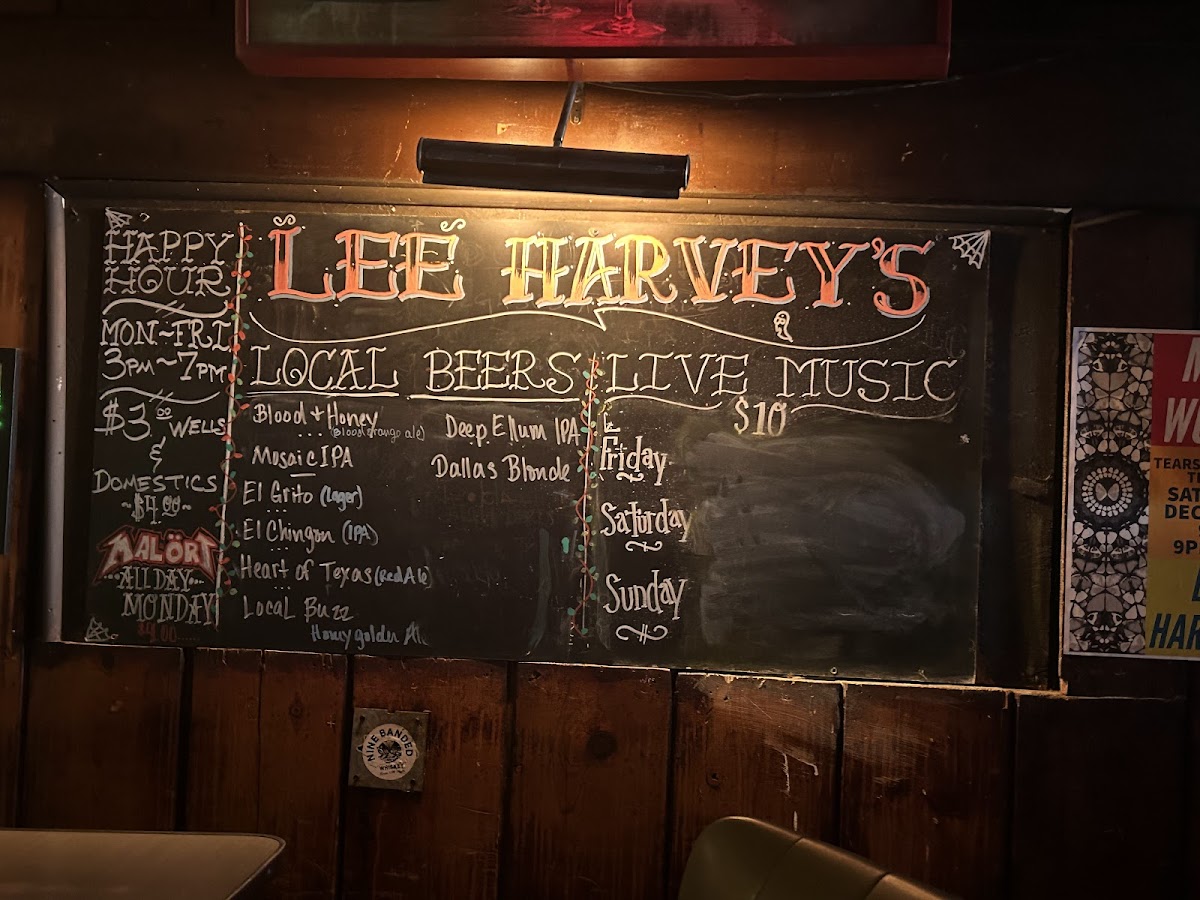 HAPPY
HOUR
MON~FRI
3PM~7PM
$3.00 WELLS
&
DOMESTICS
~$4.00~
MALÖRT
...ALL DAY...
MONDAY
$4.00......
LEE HARVEY'S
LOCAL BEERS
Blood + Honey
(Blood orange ale)
Mosaic IPA
El Grito (Lager)
El Chingon (IPA)
Heart of Texas (Red Ale)
Local Buzz
Honey golden Ale
Deep Ellum IPA
Dallas Blonde
LIVE MUSIC
$10
Friday
Saturday
Sunday
NINE BANDED
WHISKEY
TEARS
SAT
DEC
9P
HAR